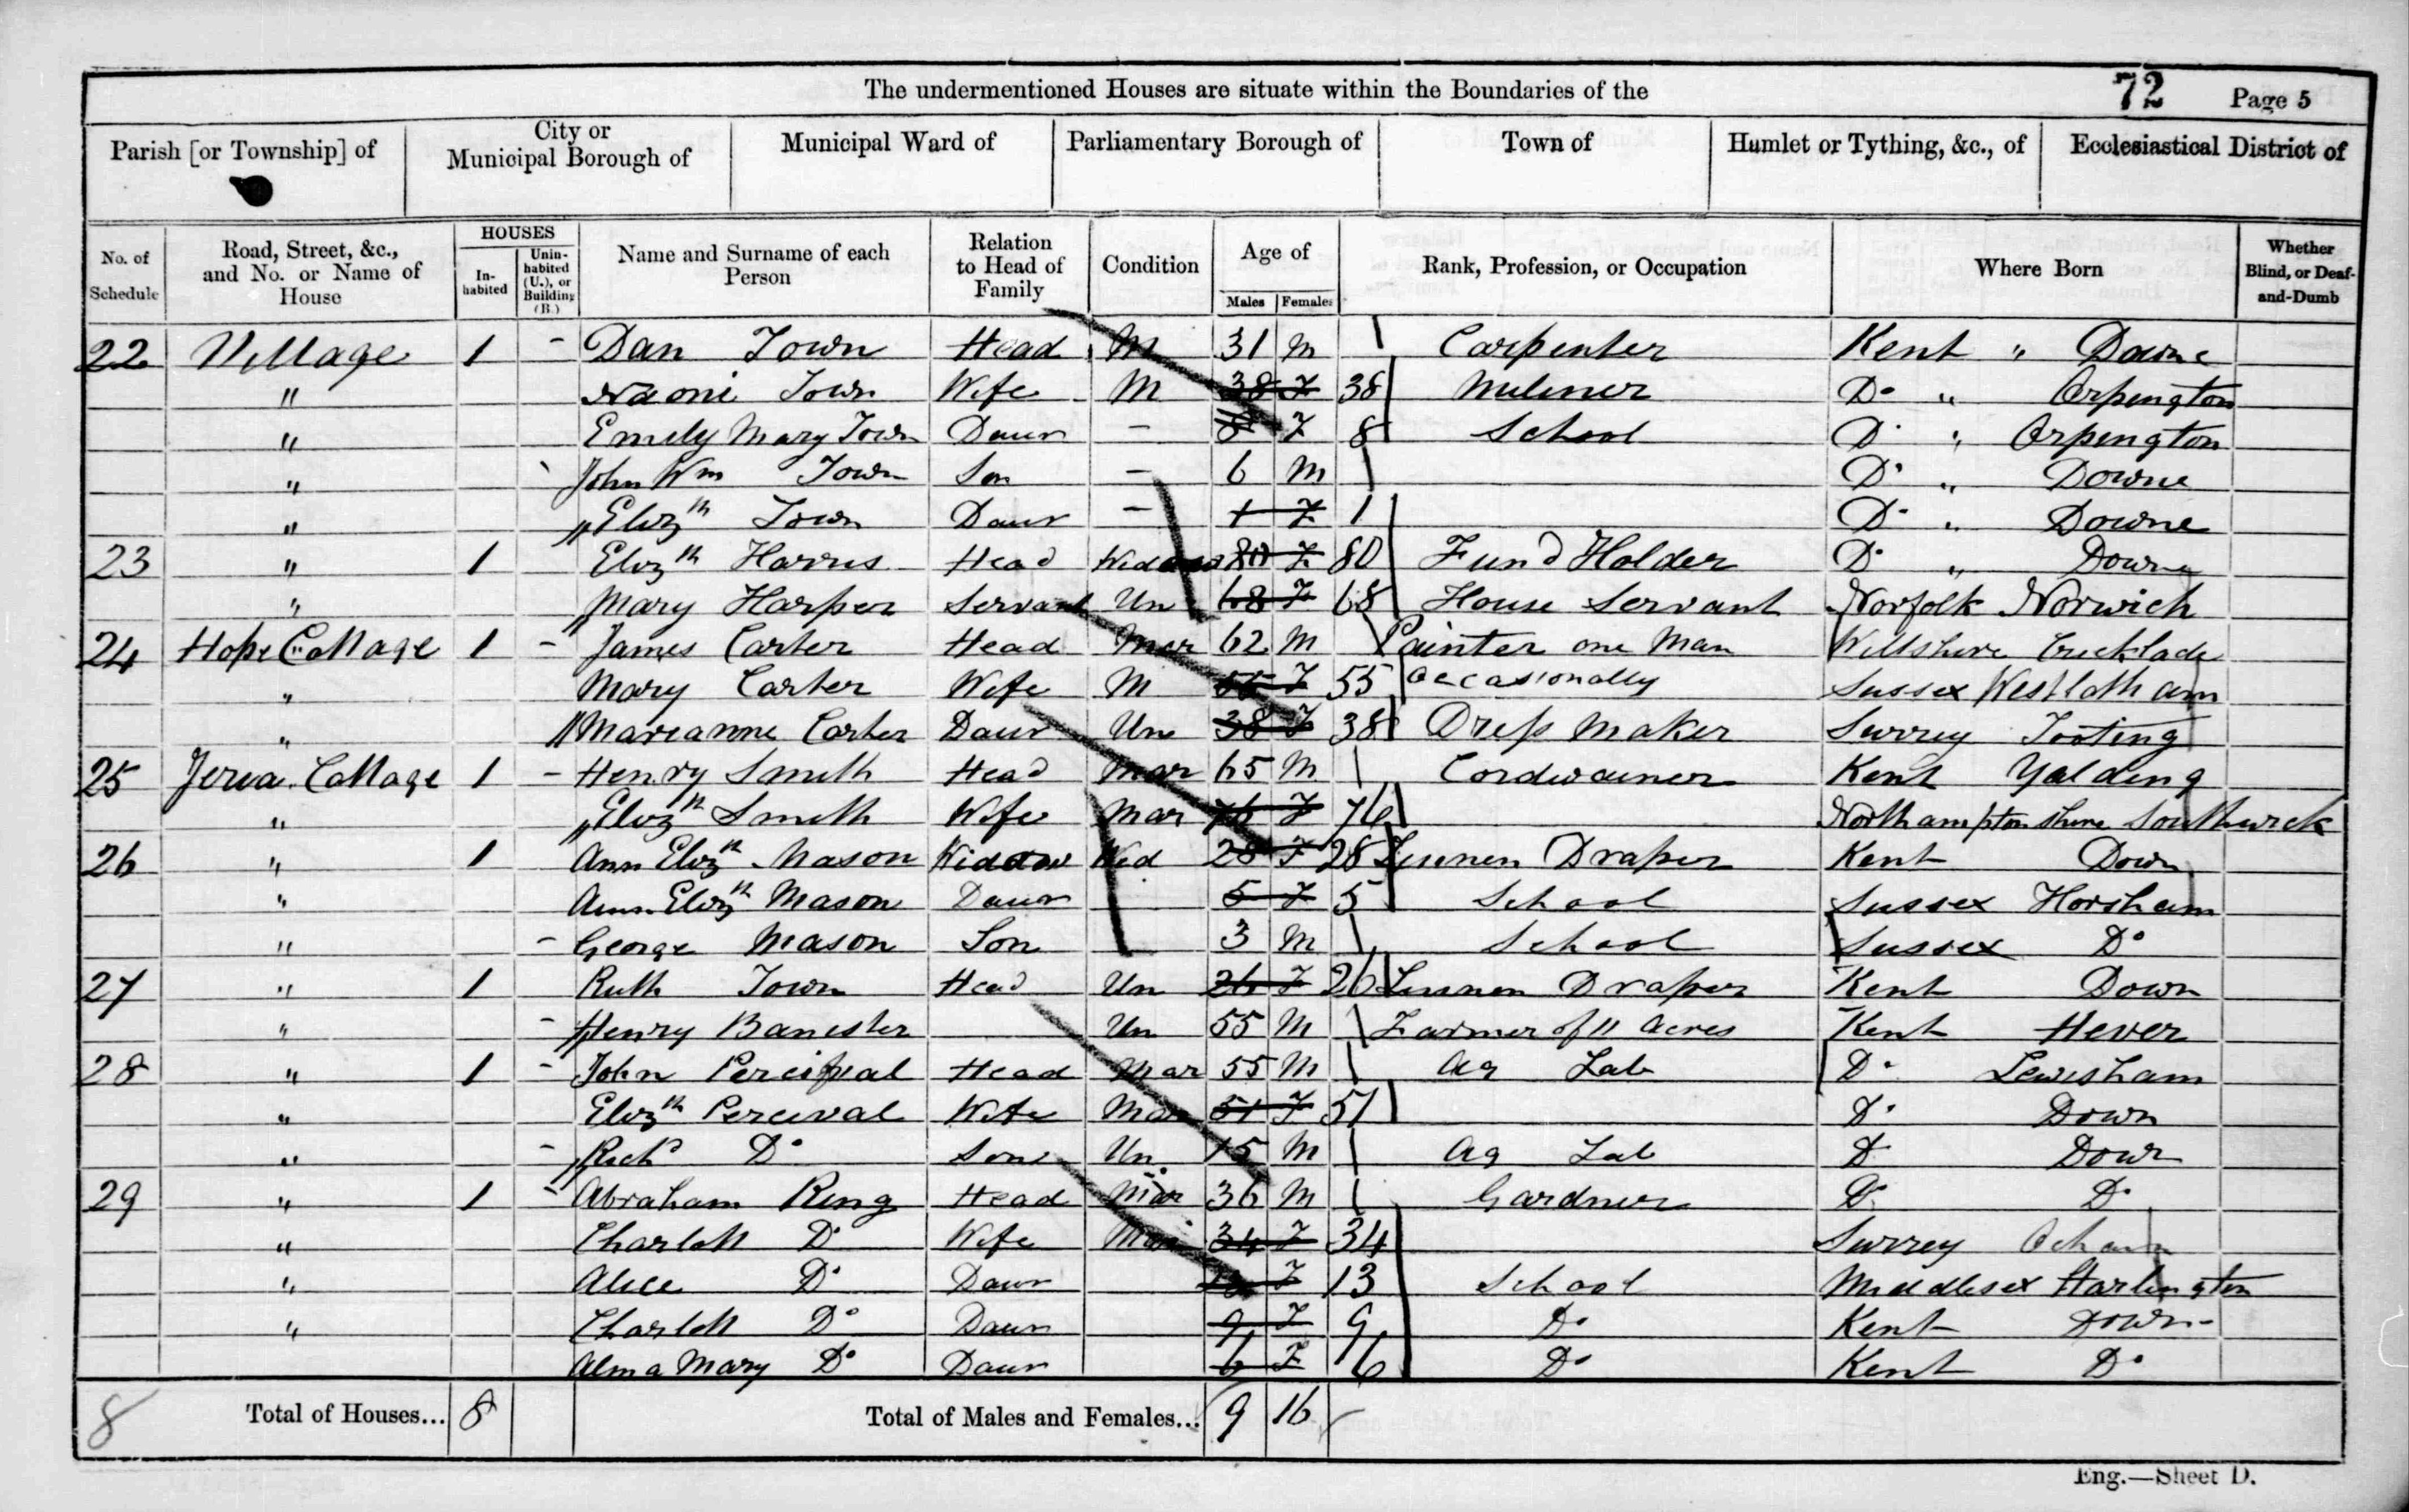 The undermentioned Houses are situate within the Boundaries of the
72 Page 5
Parish [or Township] of
City or Municipal Borough of
Municipal Ward of
Parliamentary Borough of
Town of
Hamlet or Tything, &c., of
Ecclesiastical District of
No. of Schedule
Road, Street, &c., and No. or Name of House
HOUSES
In-habited
Unin-habited (U.), or Building (B.)
Name and Surname of each Person
Relation to Head of Family
Condition
Age of
Males Females
Rank, Profession, or Occupation
Where Born
Whether Blind, or Deaf-and-Dumb
22 Village 1 - Dan Town Head M 31 M Carpenter Kent " Downe
" Naomi Town Wife M 38 F 38 Milener Do " Orpington
" Emely Mary Town Daur - 8 F 8 School Do " Orpington
" John Wm Town Son - 6 M Do " Downe
" Elizth Town Daur - 1 F 1 Do " Downe
23 " 1 Elizth Harris Head 80 F 80 Fund Holder Do " Downe
" Mary Harper Servant Un 68 F 68 House Servant Norfolk Norwich
24 Hope Cottage 1 - James Carter Head Mar 62 M Painter one Man Willshire Cricklade
" Mary Carter Wife M 55 F 55 occasionally Sussex
" Marianne Carter Daur Un 38 F 38 Dress Maker Surrey Tooting
25 Cottage 1 - Henry Smith Head Mar 65 M Cordwainer Kent Yalding
" Elizth Smith Wife Mar 76 F 76 Northamptonshire Southwick
26 " 1 Ann Elizth Mason Widdow Wid 28 F 28 Linnen Draper Kent Down
" Ann Elizth Mason Daur 5 F 5 School Sussex Horsham
" - George Mason Son 3 M School Sussex Do
27 " 1 Ruth Town Head Un 26 F 26 Linnen Draper Kent Down
" - Henry Banester Un 55 M Farmer of 11 Acres Kent Hever
28 " 1 - John Percifval Head Mar 55 M Ag Lab Do Lewisham
" Elizth Percival Wife Mar 51 F 51 Do Down
" - Richd Do Son Un 15 M Ag Lab Do Down
29 " 1 - Abraham King Head Mar 36 M Gardner Do Do
" Charlott Do Wife Mar 34 F 34 Surrey
" Alice Do Daur 13 F 13 School Middlesex Harlington
" Charlott Do Daur 9 F 9 Do Kent Down
Alma Mary Do Daur 6 F 6 Do Kent Do
8 Total of Houses... 8 Total of Males and Females... 9 16
Eng.—Sheet D.